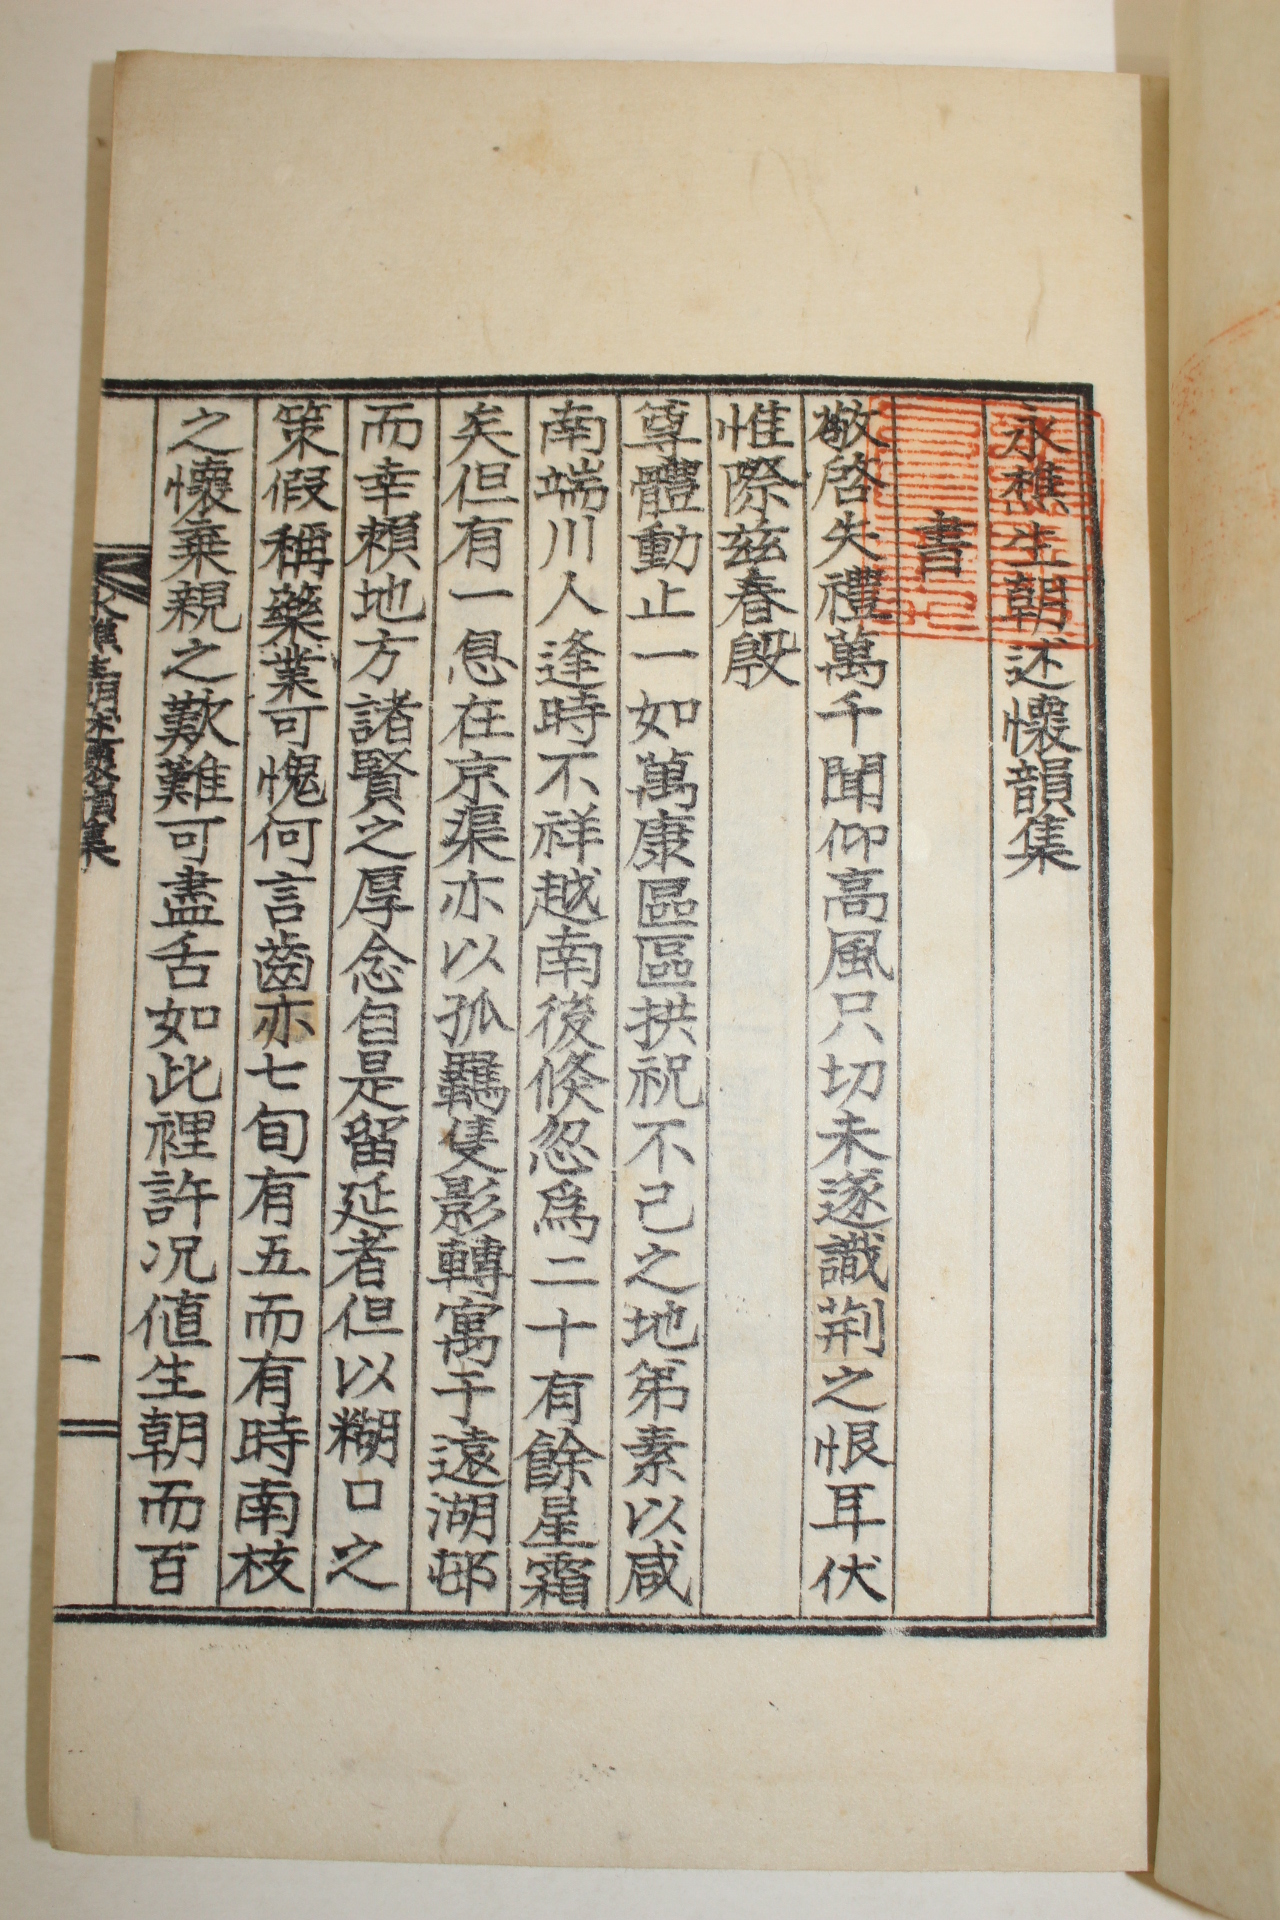 永樵生朝述懷韻集
書
敬啓失禮萬千聞仰高風只切未遂識荊之恨耳伏
惟際玆春殷
尊體動止一如萬康區區拱祝不已之地弟素以咸
南端川人逢時不祥越南後倏忽爲二十有餘星霜
矣但有一息在京渠亦以孤羈隻影轉寓于遠湖邨
而幸賴地方諸賢之厚念自是留延者但以糊口之
策假稱藥業可愧何言齒亦七旬有五而有時南枝
之懷棄親之歎難可盡舌如此裡許况値生朝而百
永樵生朝述懷韻集
一